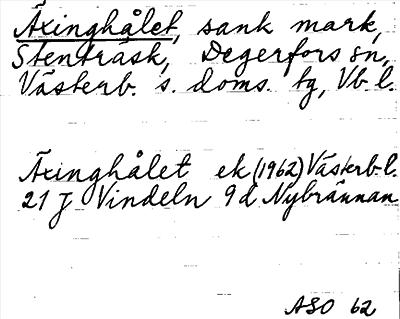 Äxinghålet, sank mark,
Stenträsk, Degerfors sn,
Västerb. s. doms. tg, Vb. l.
Äxinghålet ek (1962) Västerb-l.
21 J Vindeln 9d Nybrännan
ASO 62